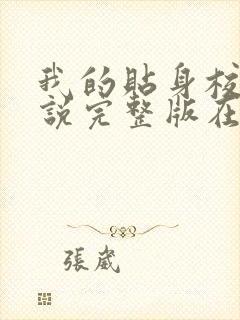 我的貼身校
說完整版在
張崴